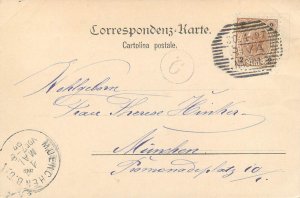 Correspondenz-Karte.
Cartolina postale.
30.4.97
RIVA
Wohlgeboren
Frau Therese Hinker
München
Promenadeplatz 10/I.
MUENCHEN
1 MAI